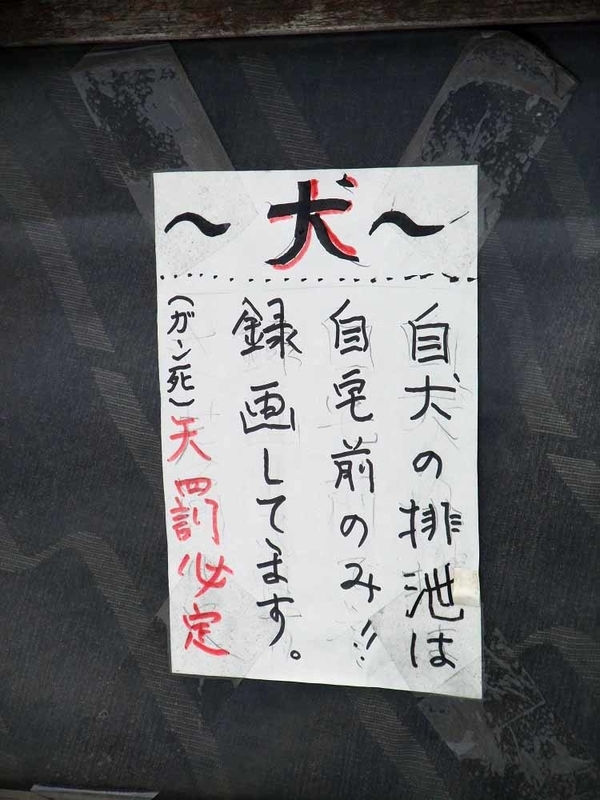 〜犬〜
自犬の排泄は
自宅前のみ!!
録画してます。
(ガン死)天罰必定